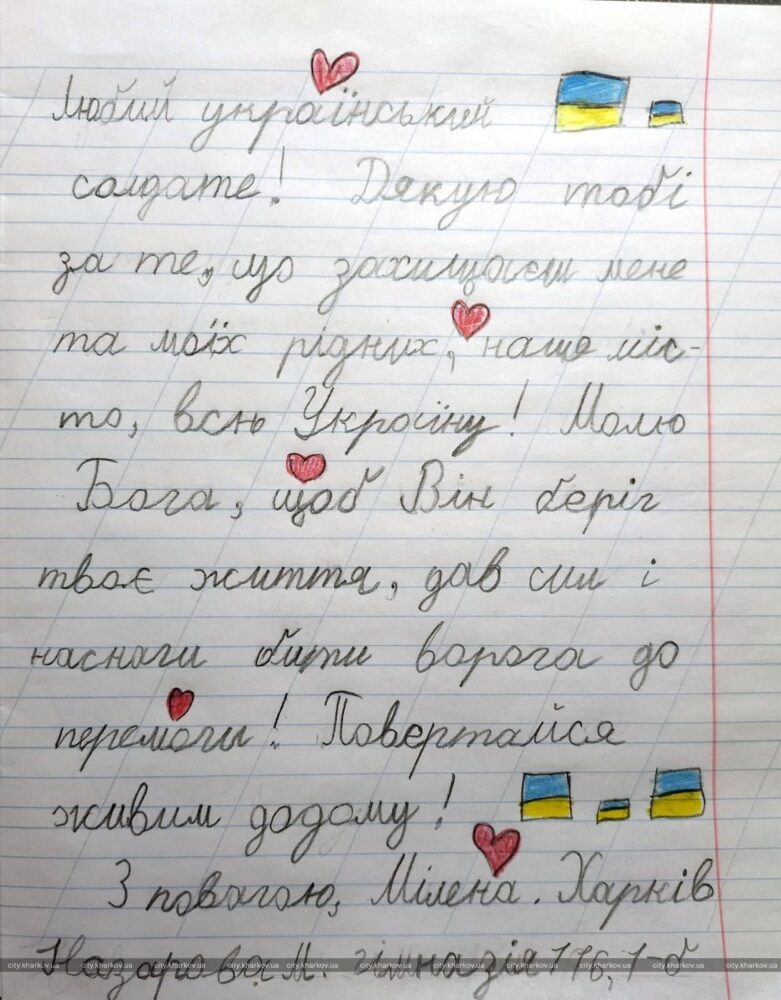 Любий український
солдате! Дякую тобі
за те, що захищаєш мене
та моїх рідних, наше міс-
то, всю Україну! Молю
Бога, щоб Він беріг
твоє життя, дав сил і
наснаги бити ворога до
перемоги! Повертайся
живим додому!
З повагою, Мілена. Харків
Назарова М. гімназія 116, 1-б
city.kharkov.ua city.kharkov.ua city.kharkov.ua city.kharkov.ua city.kharkov.ua city.kharkov.ua city.kharkov.ua